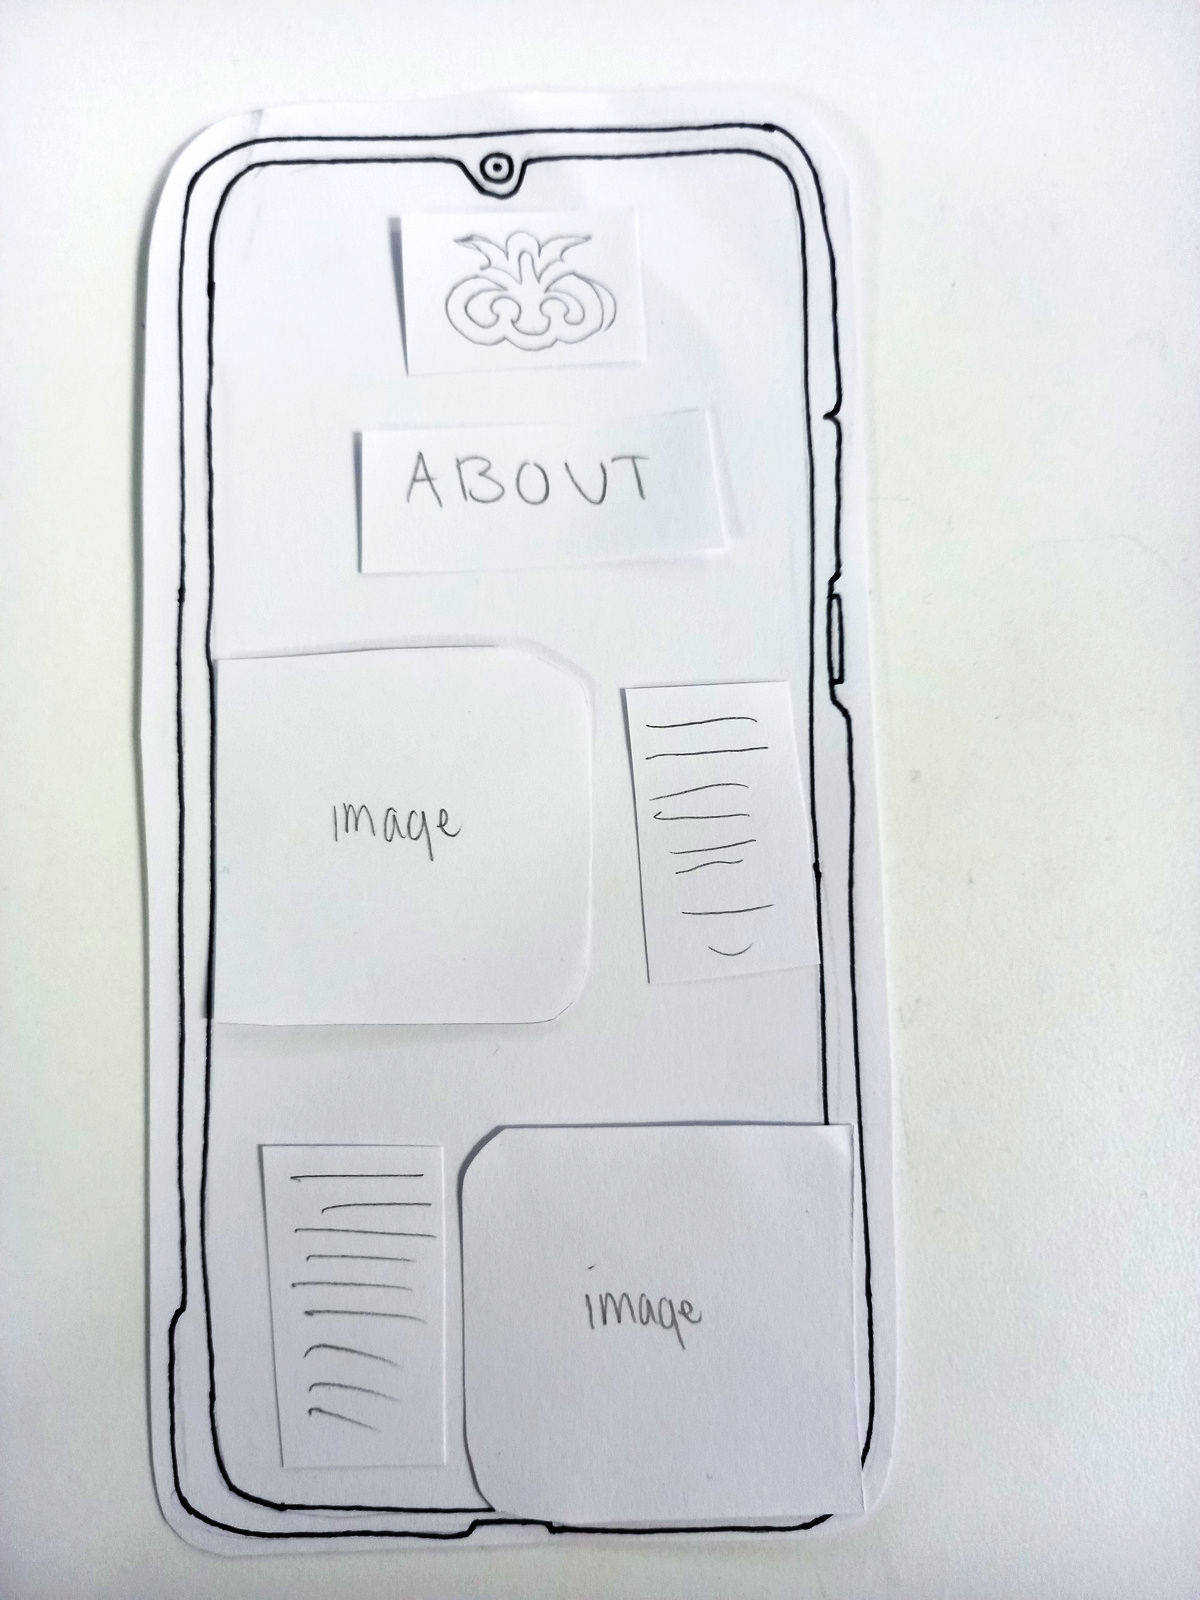 ABOUT
image
image